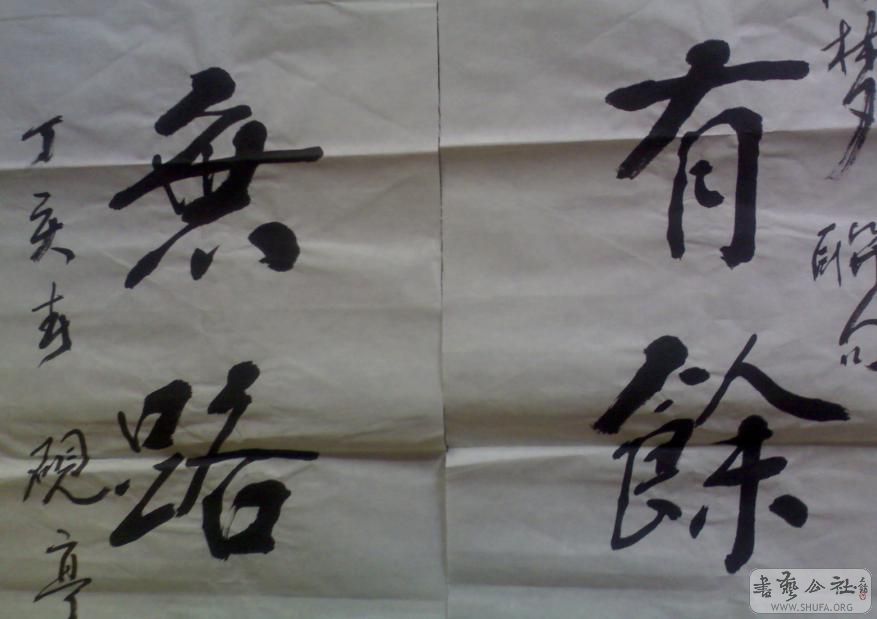 梦 聯
有餘
無路
丁亥春 硯亭
書藝公社
WWW.SHUFA.ORG